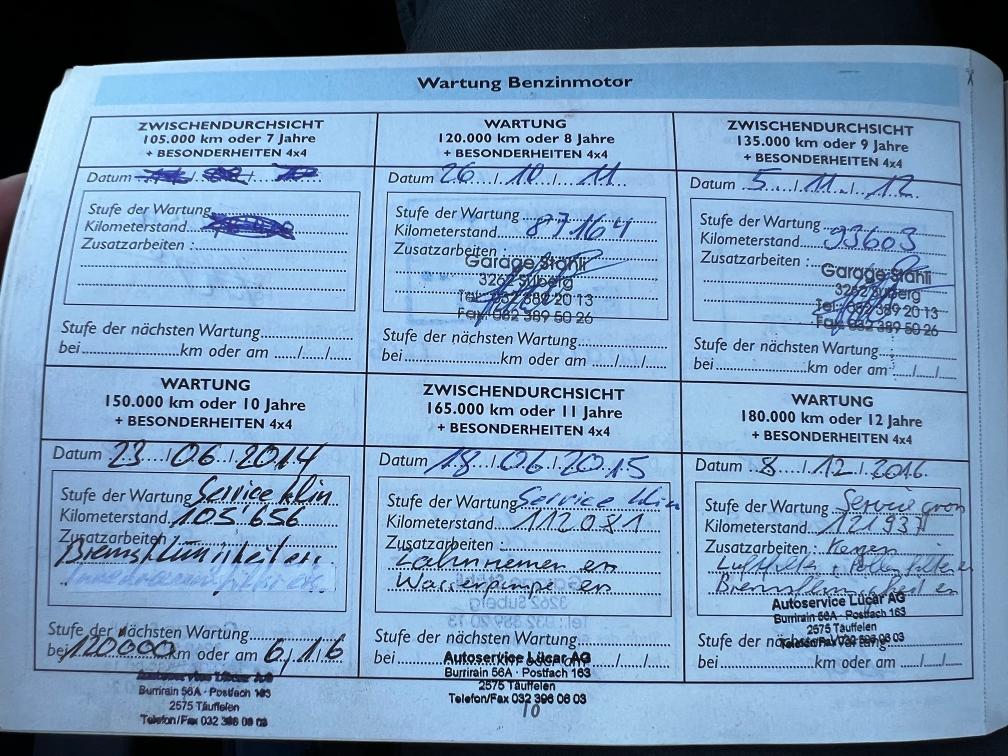 Wartung Benzinmotor
ZWISCHENDURCHSICHT
105.000 km oder 7 Jahre
+ BESONDERHEITEN 4x4
Datum
Stufe der Wartung
Kilometerstand
Zusatzarbeiten :
Stufe der nächsten Wartung
bei km oder am ..../..../....
WARTUNG
120.000 km oder 8 Jahre
+ BESONDERHEITEN 4x4
Datum 26 / 10 / 11
Stufe der Wartung
Kilometerstand 87164
Zusatzarbeiten :
Garage Stähli
3262 Suberg
Tel. 032 389 20 13
Fax 032 389 50 26
Stufe der nächsten Wartung
bei km oder am ..../..../....
ZWISCHENDURCHSICHT
135.000 km oder 9 Jahre
+ BESONDERHEITEN 4x4
Datum 5. / 11. / 12
Stufe der Wartung
Kilometerstand 93603
Zusatzarbeiten :
Garage Stähli
3262 Suberg
Tel. 032 389 20 13
Fax 032 389 50 26
Stufe der nächsten Wartung
bei km oder am ..../..../....
WARTUNG
150.000 km oder 10 Jahre
+ BESONDERHEITEN 4x4
Datum 23 / 06 / 2014
Stufe der Wartung Service klin
Kilometerstand 105'656
Zusatzarbeiten :
Stufe der nächsten Wartung
bei 120000 km oder am 6/1/6
Autoservice Lücar AG
Burrirain 56A · Postfach 163
2575 Täuffelen
Telefon/Fax 032 396 06 03
ZWISCHENDURCHSICHT
165.000 km oder 11 Jahre
+ BESONDERHEITEN 4x4
Datum 18 / 06 / 2015
Stufe der Wartung Service klin
Kilometerstand 112081
Zusatzarbeiten :
Zahnriemen en
Wasserpumpe en
Stufe der nächsten Wartung
bei km oder am ..../..../....
Autoservice Lücar AG
Burrirain 56A · Postfach 163
2575 Täuffelen
Telefon/Fax 032 396 06 03
10
WARTUNG
180.000 km oder 12 Jahre
+ BESONDERHEITEN 4x4
Datum 8 / 12 / 2016
Stufe der Wartung Service gros
Kilometerstand 121937
Zusatzarbeiten : Kerzen
Luftfilter + Pollenfilter
Bremsflüssigkeit en
Autoservice Lücar AG
Burrirain 56A · Postfach 163
2575 Täuffelen
Telefon/Fax 032 396 06 03
Stufe der nächsten Wartung
bei km oder am ..../..../....